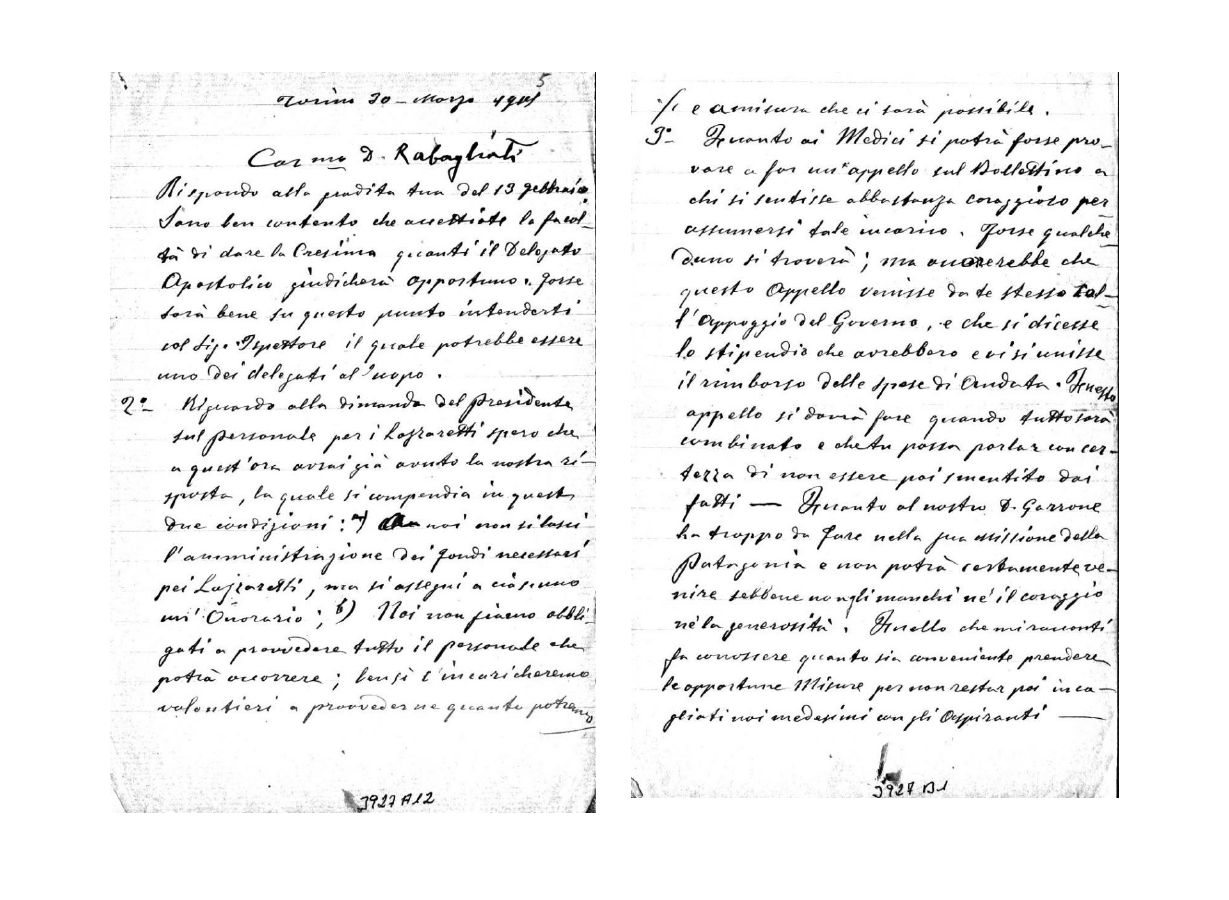 5
Torino 30 - Marzo 1905
Car mo D. Rabagliati
Rispondo alla gradita tua del 13 febbraio
Sono ben contento che accettiate la facol-
tà di dare la Cresima quanti il Delegato
Apostolico giudicherà opportuno. Forse
sarà bene su questo punto intenderti
col Sig. Ispettore il quale potrebbe essere
uno dei delegati al'uopo.
2º Riguardo alla dimanda del Presidente
sul personale per i Lazzaretti spero che
a quest'ora avrai già avuto la nostra ri-
sposta, la quale si compendia in queste
due condizioni: a) A noi non si lasci
l'amministrazione dei fondi necessari
pei Lazzaretti, ma si assegni a ciascuno
un' Onorario; b) Noi non siamo obbli-
gati a provvedere tutto il personale che
potrà occorrere; bensì c'incaricheremo
volontieri a provvederne quanto potremo
3927 A12
/. e a misura che ci sarà possibile.
3º Quanto ai Medici si potrà forse pro-
vare a far un'appello sul Bollettino a
chi si sentisse abbastanza coraggioso per
assumersi tale incarico. Forse qualche
duno si troverà; ma occorrerebbe che
questo Appello venisse da te stesso col-
l'Appoggio del Governo, e che si dicesse
lo stipendio che avrebbero e vi si unisse
il rimborso delle spese di Andata. Questo
appello si dovrà fare quando tutto sarà
combinato e che tu possa parlar con cer-
tezza di non essere poi smentito dai
fatti — Quanto al nostro D. Garrone
ha troppo da fare nella sua missione della
Patagonia e non potrà certamente ve-
nire sebbene non gli manchi nè il coraggio
nè la generosità. Quello che mi racconti
fa conoscere quanto sia conveniente prendere
le opportune Misure per non restar poi inca-
gliati noi medesimi con gli Aspiranti —
3927 B1